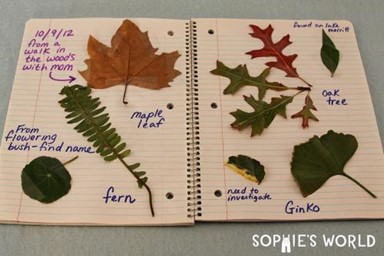 10/9/12
from a
walk in
the woods
with mom
maple
leaf
From
flowering
bush-find name
fern
found on lake
merritt
oak
tree
need to
investigate
Ginko
SOPHIE'S WORLD